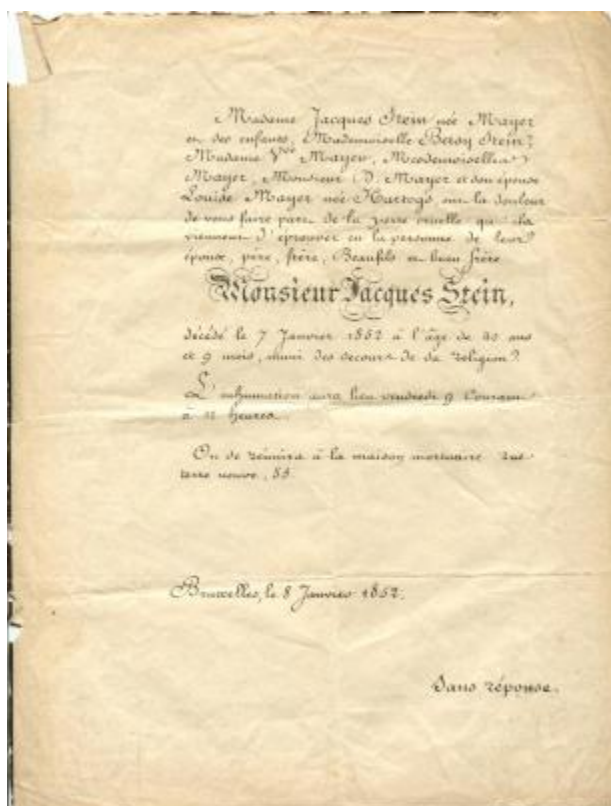 Madame Jacques Stein née Mayer
et ses enfants, Mademoiselle Betsy Stein,
Madame Vve Mayer, Mesdemoiselles
Mayer, Monsieur D. Mayer et son épouse
Louise Mayer née Hartogs, ont la douleur
de vous faire part de la perte cruelle qu'ils
viennent d'éprouver en la personne de leur
époux, père, frère, Beaufils et beau frère
Monsieur Jacques Stein,
décédé le 7 Janvier 1852 à l'âge de 40 ans
et 9 mois, muni des secours de sa religion.
L'inhumation aura lieu vendredi 9 Courant
à heures.
On se réunira à la maison mortuaire rue
terre neuve,
Bruxelles, le 8 Janvier 1852.
Sans réponse.